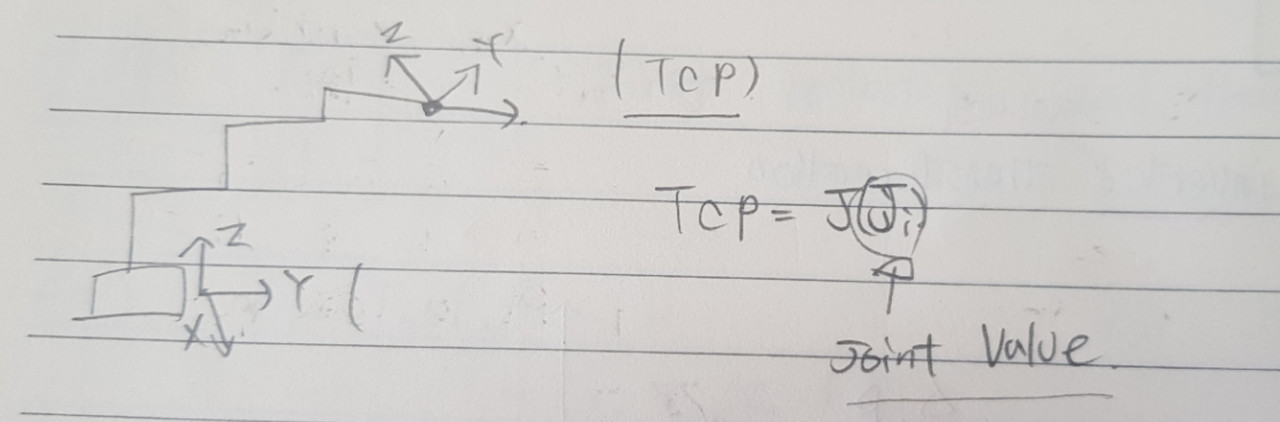 Z Y (TCP)
TCP = J(Ji)
Z
Y (
X
Joint Value